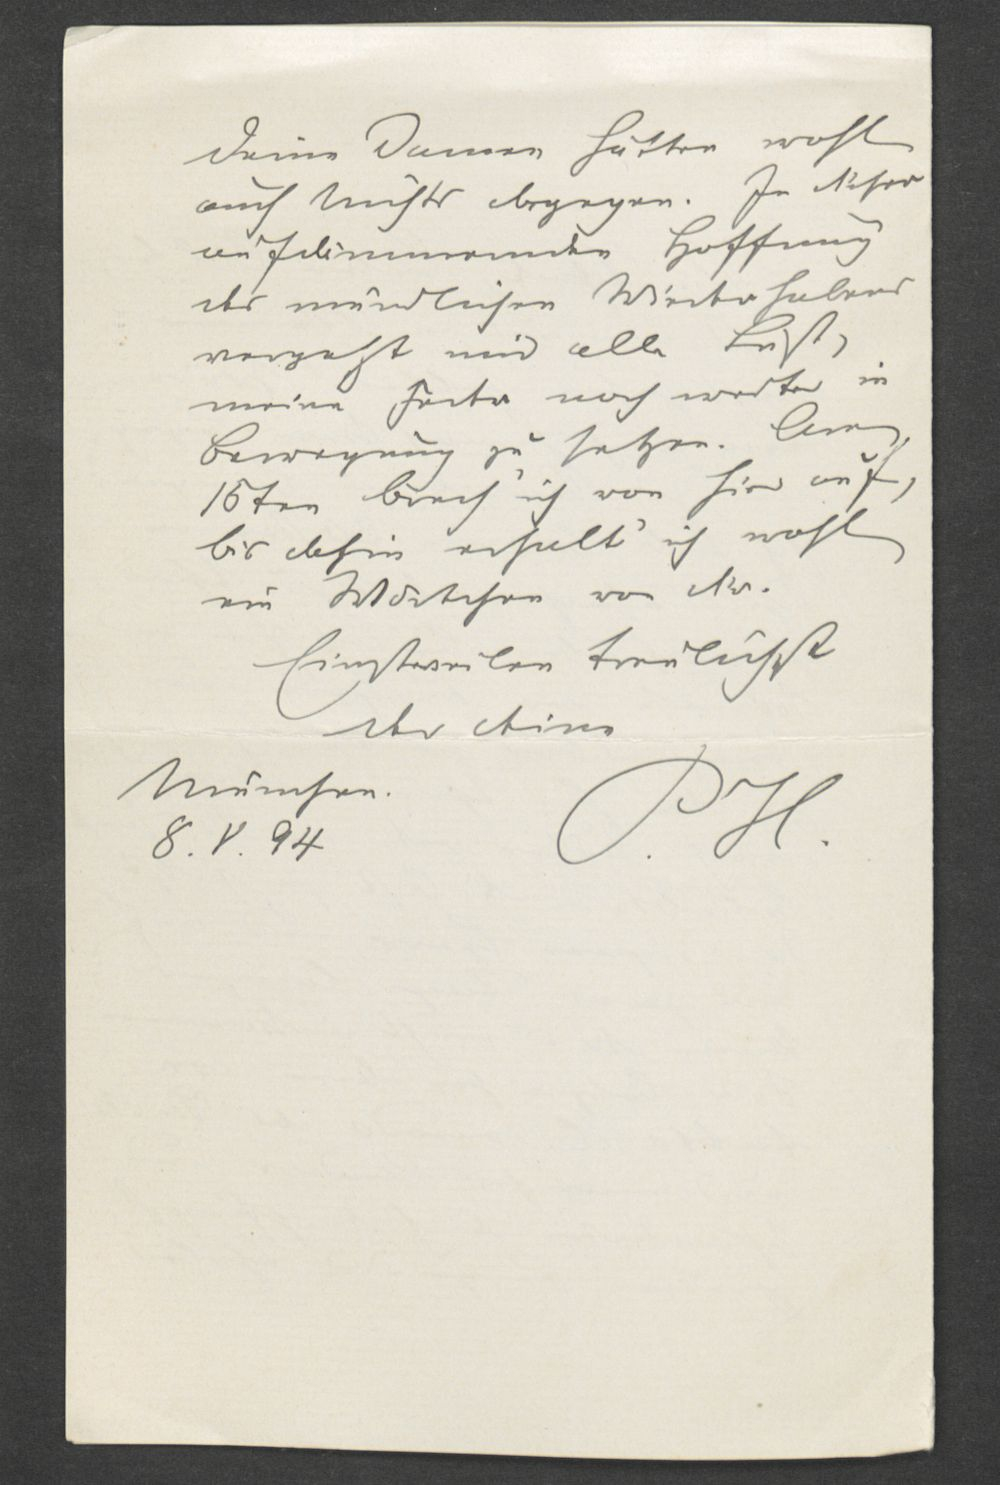 Deine Damen hätten wohl
auch Nichts dagegen. In dieser
aufdämmernden Hoffnung
des mündlichen Wiederhabens
vergeht mir alle Lust,
meine Feder noch weiter in
Bewegung zu setzen. Am
15ten brech' ich von hier auf,
bis dahin erhalt' ich wohl
ein Wörtchen von Dir.
Einstweilen treulichst
der Deine
P. H.
München.
8. V. 94